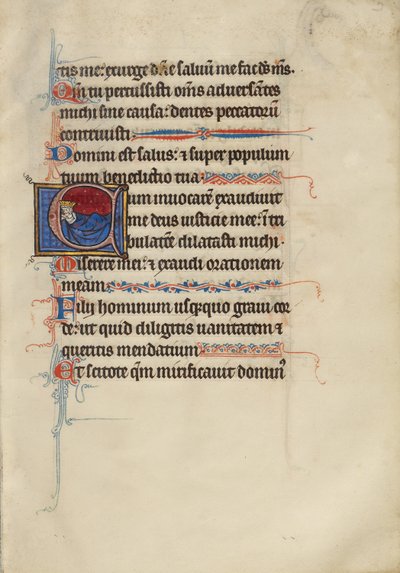 tis me: exurge dñe saluũ me fac ds ms.
Qm̃ tu percussisti oms̃ adversãtes
michi sine causa: dentes peccatorũ
contrivisti.
Domini est salus: & super populum
tuum benedictio tua.
Cum invocarẽ exaudivit
me deus iusticie mee: ĩ tri
bulatõe dilatasti michi.
Miserere mei: & exaudi orationem
meam.
Filij hominum usq̃quo gravi cor
de: ut quid diligitis vanitatem &
queritis mendatium
Et scitote qm̃ mirificavit domin9